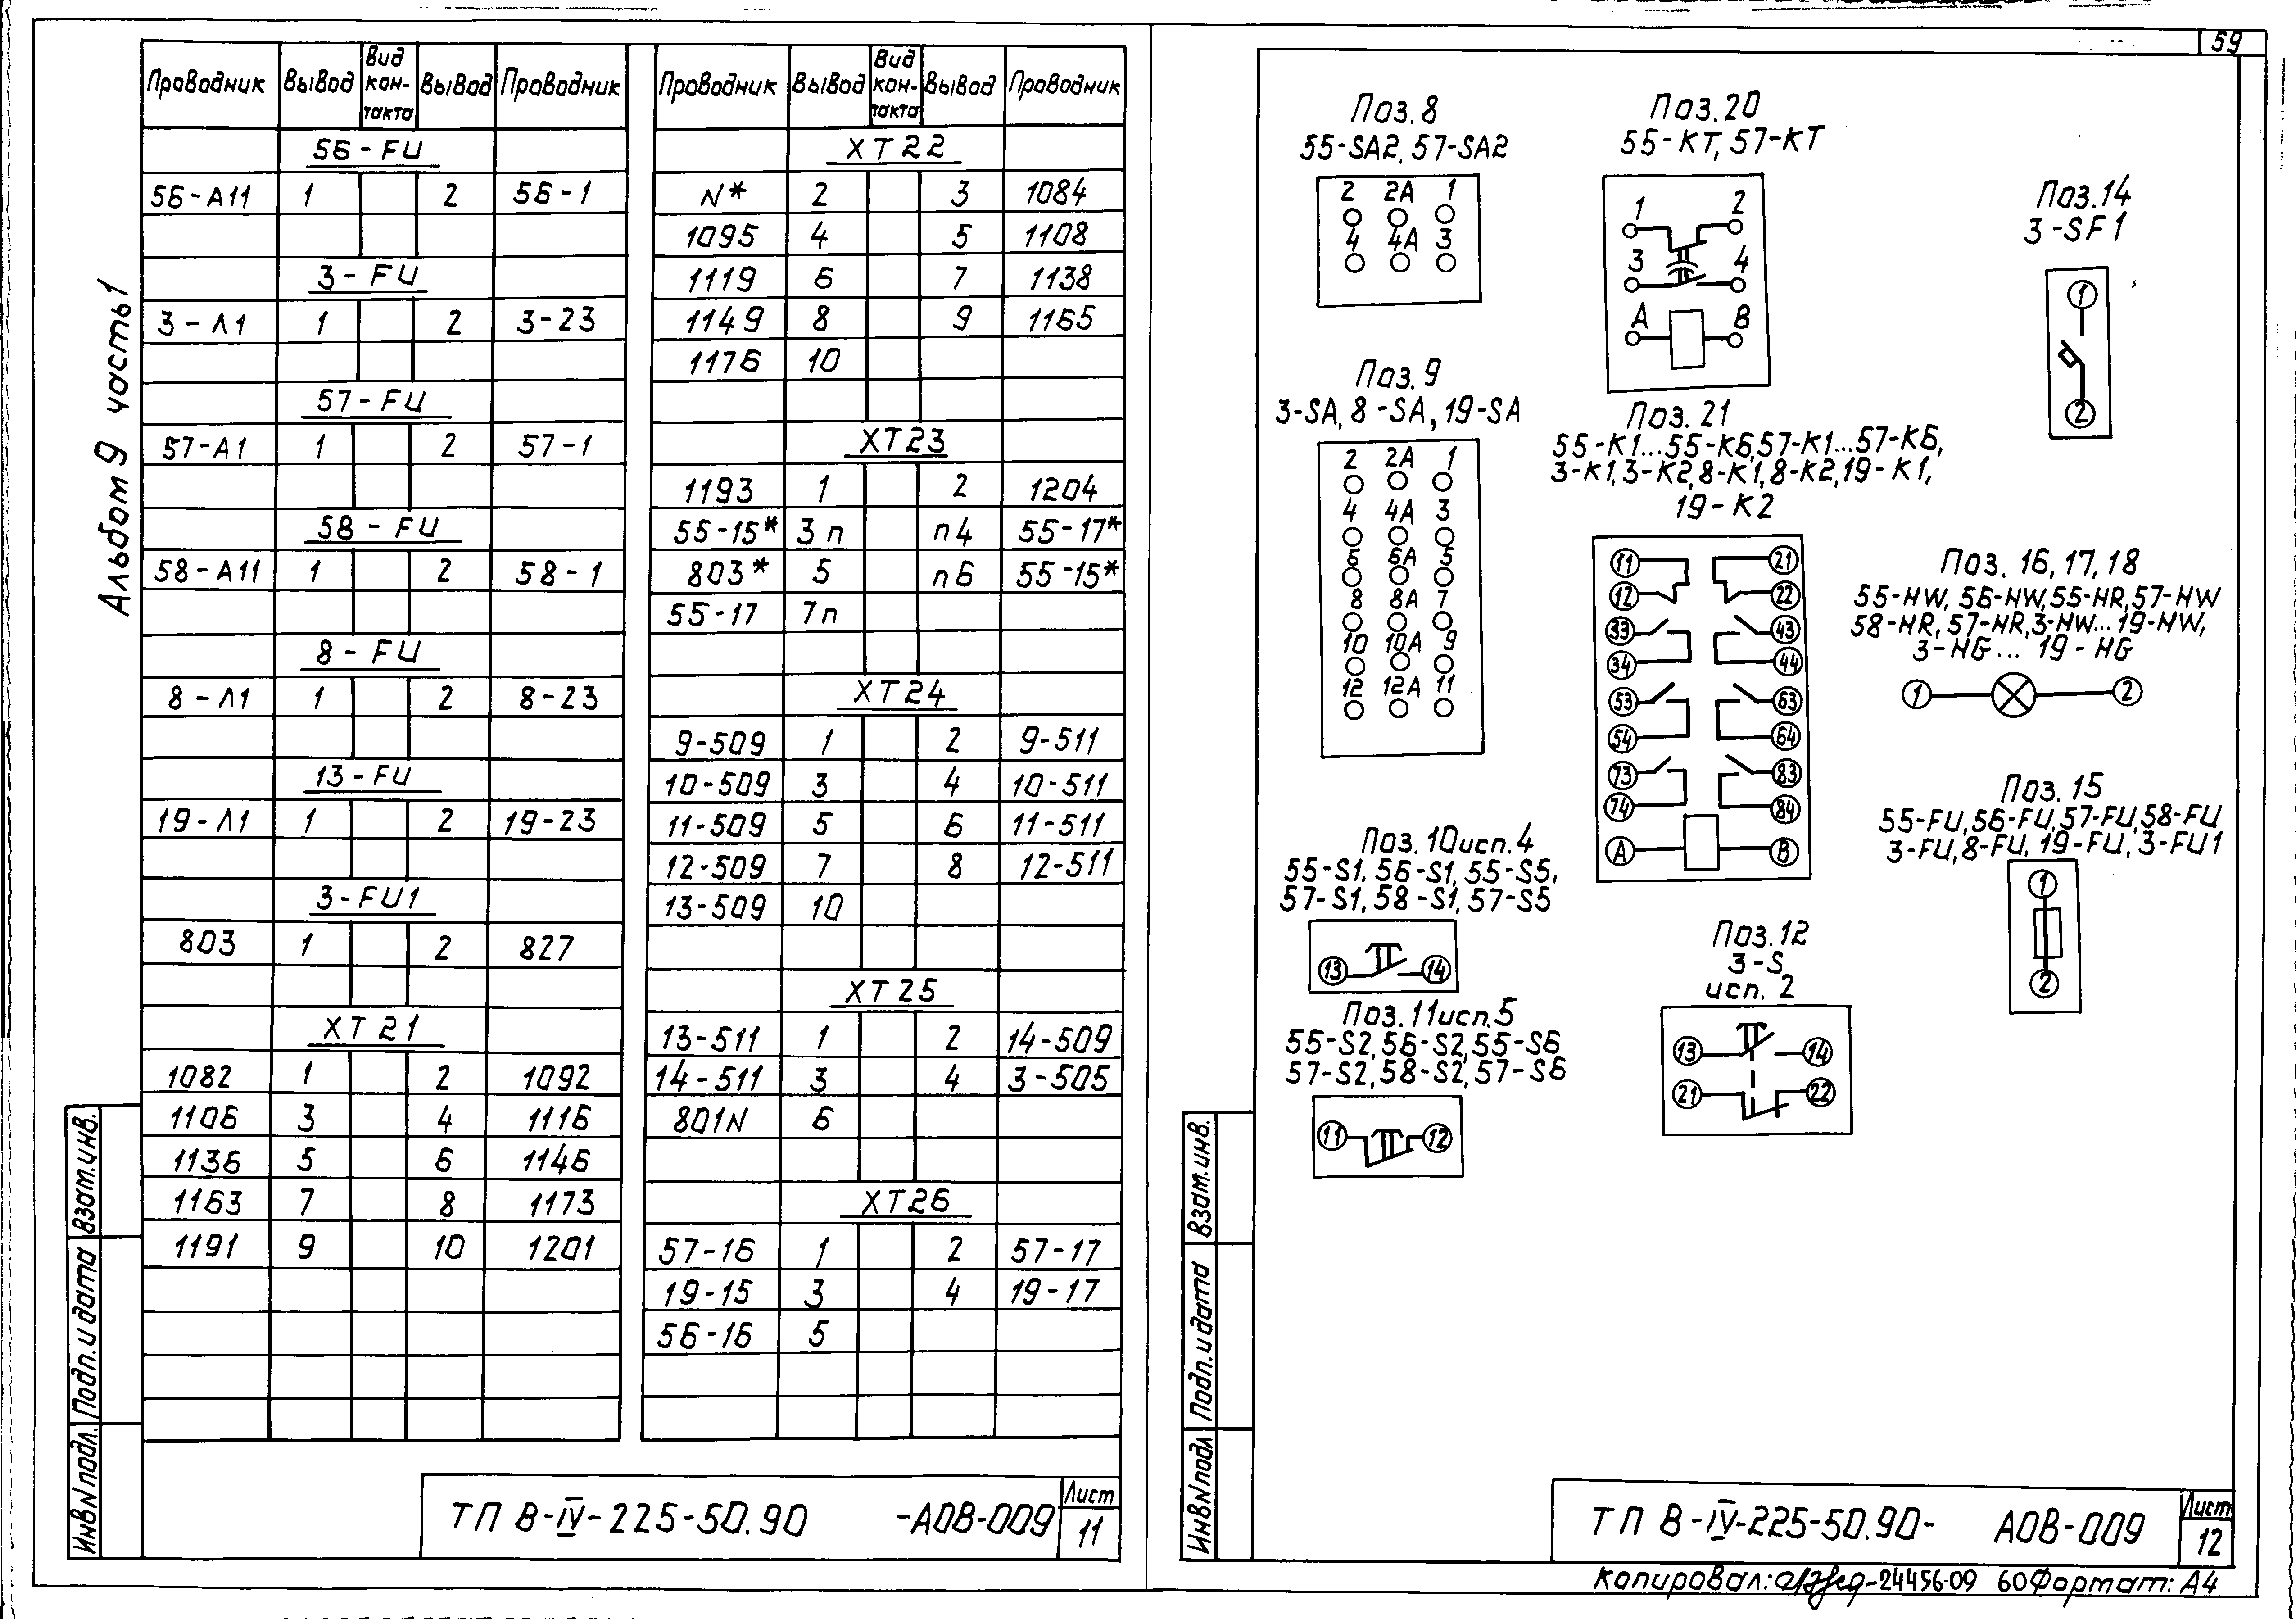 Альбом 9 часть 1
Проводник Вывод Вид кон-такта Вывод Проводник
56-FU
56-А11 1 2 56-1
3-FU
3-Л1 1 2 3-23
57-FU
57-А1 1 2 57-1
58-FU
58-А11 1 2 58-1
8-FU
8-Л1 1 2 8-23
13-FU
19-Л1 1 2 19-23
3-FU1
803 1 2 827
XT21
1082 1 2 1092
1106 3 4 1116
1136 5 6 1146
1163 7 8 1173
1191 9 10 1201
Проводник Вывод Вид кон-такта Вывод Проводник
XT22
N* 2 3 1084
1095 4 5 1108
1119 6 7 1138
1149 8 9 1165
1176 10
XT23
1193 1 2 1204
55-15* 3п п4 55-17*
803* 5 п6 55-15*
55-17 7п
XT24
9-509 1 2 9-511
10-509 3 4 10-511
11-509 5 6 11-511
12-509 7 8 12-511
13-509 10
XT25
13-511 1 2 14-509
14-511 3 4 3-505
801N 6
XT26
57-16 1 2 57-17
19-15 3 4 19-17
56-16 5
Взам.инв.
Подп. и дата
Инв.N подл.
ТП В-IV-225-50.90 -АОВ-009
Лист
11
59
Поз.8
55-SA2, 57-SA2
2 2А 1
4 4А 3
Поз.9
3-SA, 8-SA, 19-SA
2 2А 1
4 4А 3
6 6А 5
8 8А 7
10 10А 9
12 12А 11
Поз.10исп.4
55-S1, 56-S1, 55-S5,
57-S1, 58-S1, 57-S5
13 14
Поз.11исп.5
55-S2, 56-S2, 55-S6
57-S2, 58-S2, 57-S6
11 12
Поз.20
55-KT, 57-KT
1 2
3 4
А В
Поз.21
55-К1...55-К6, 57-К1...57-К6,
3-К1, 3-К2, 8-К1, 8-К2, 19-К1,
19-К2
11 21
12 22
33 43
34 44
53 63
54 64
73 83
74 84
А В
Поз.12
3-S
исп. 2
13 14
21 22
Поз.14
3-SF1
1
2
Поз. 16, 17, 18
55-HW, 56-HW, 55-HR, 57-HW
58-HR, 57-HR, 3-HW... 19-HW,
3-HG... 19-HG
1 2
Поз. 15
55-FU, 56-FU, 57-FU, 58-FU
3-FU, 8-FU, 19-FU, 3-FU1
1
2
Взам.инв.
Подп. и дата
Инв.N подл
ТП В-IV-225-50.90- АОВ-009
Лист
12
Копировал: -24456-09 60 Формат: А4